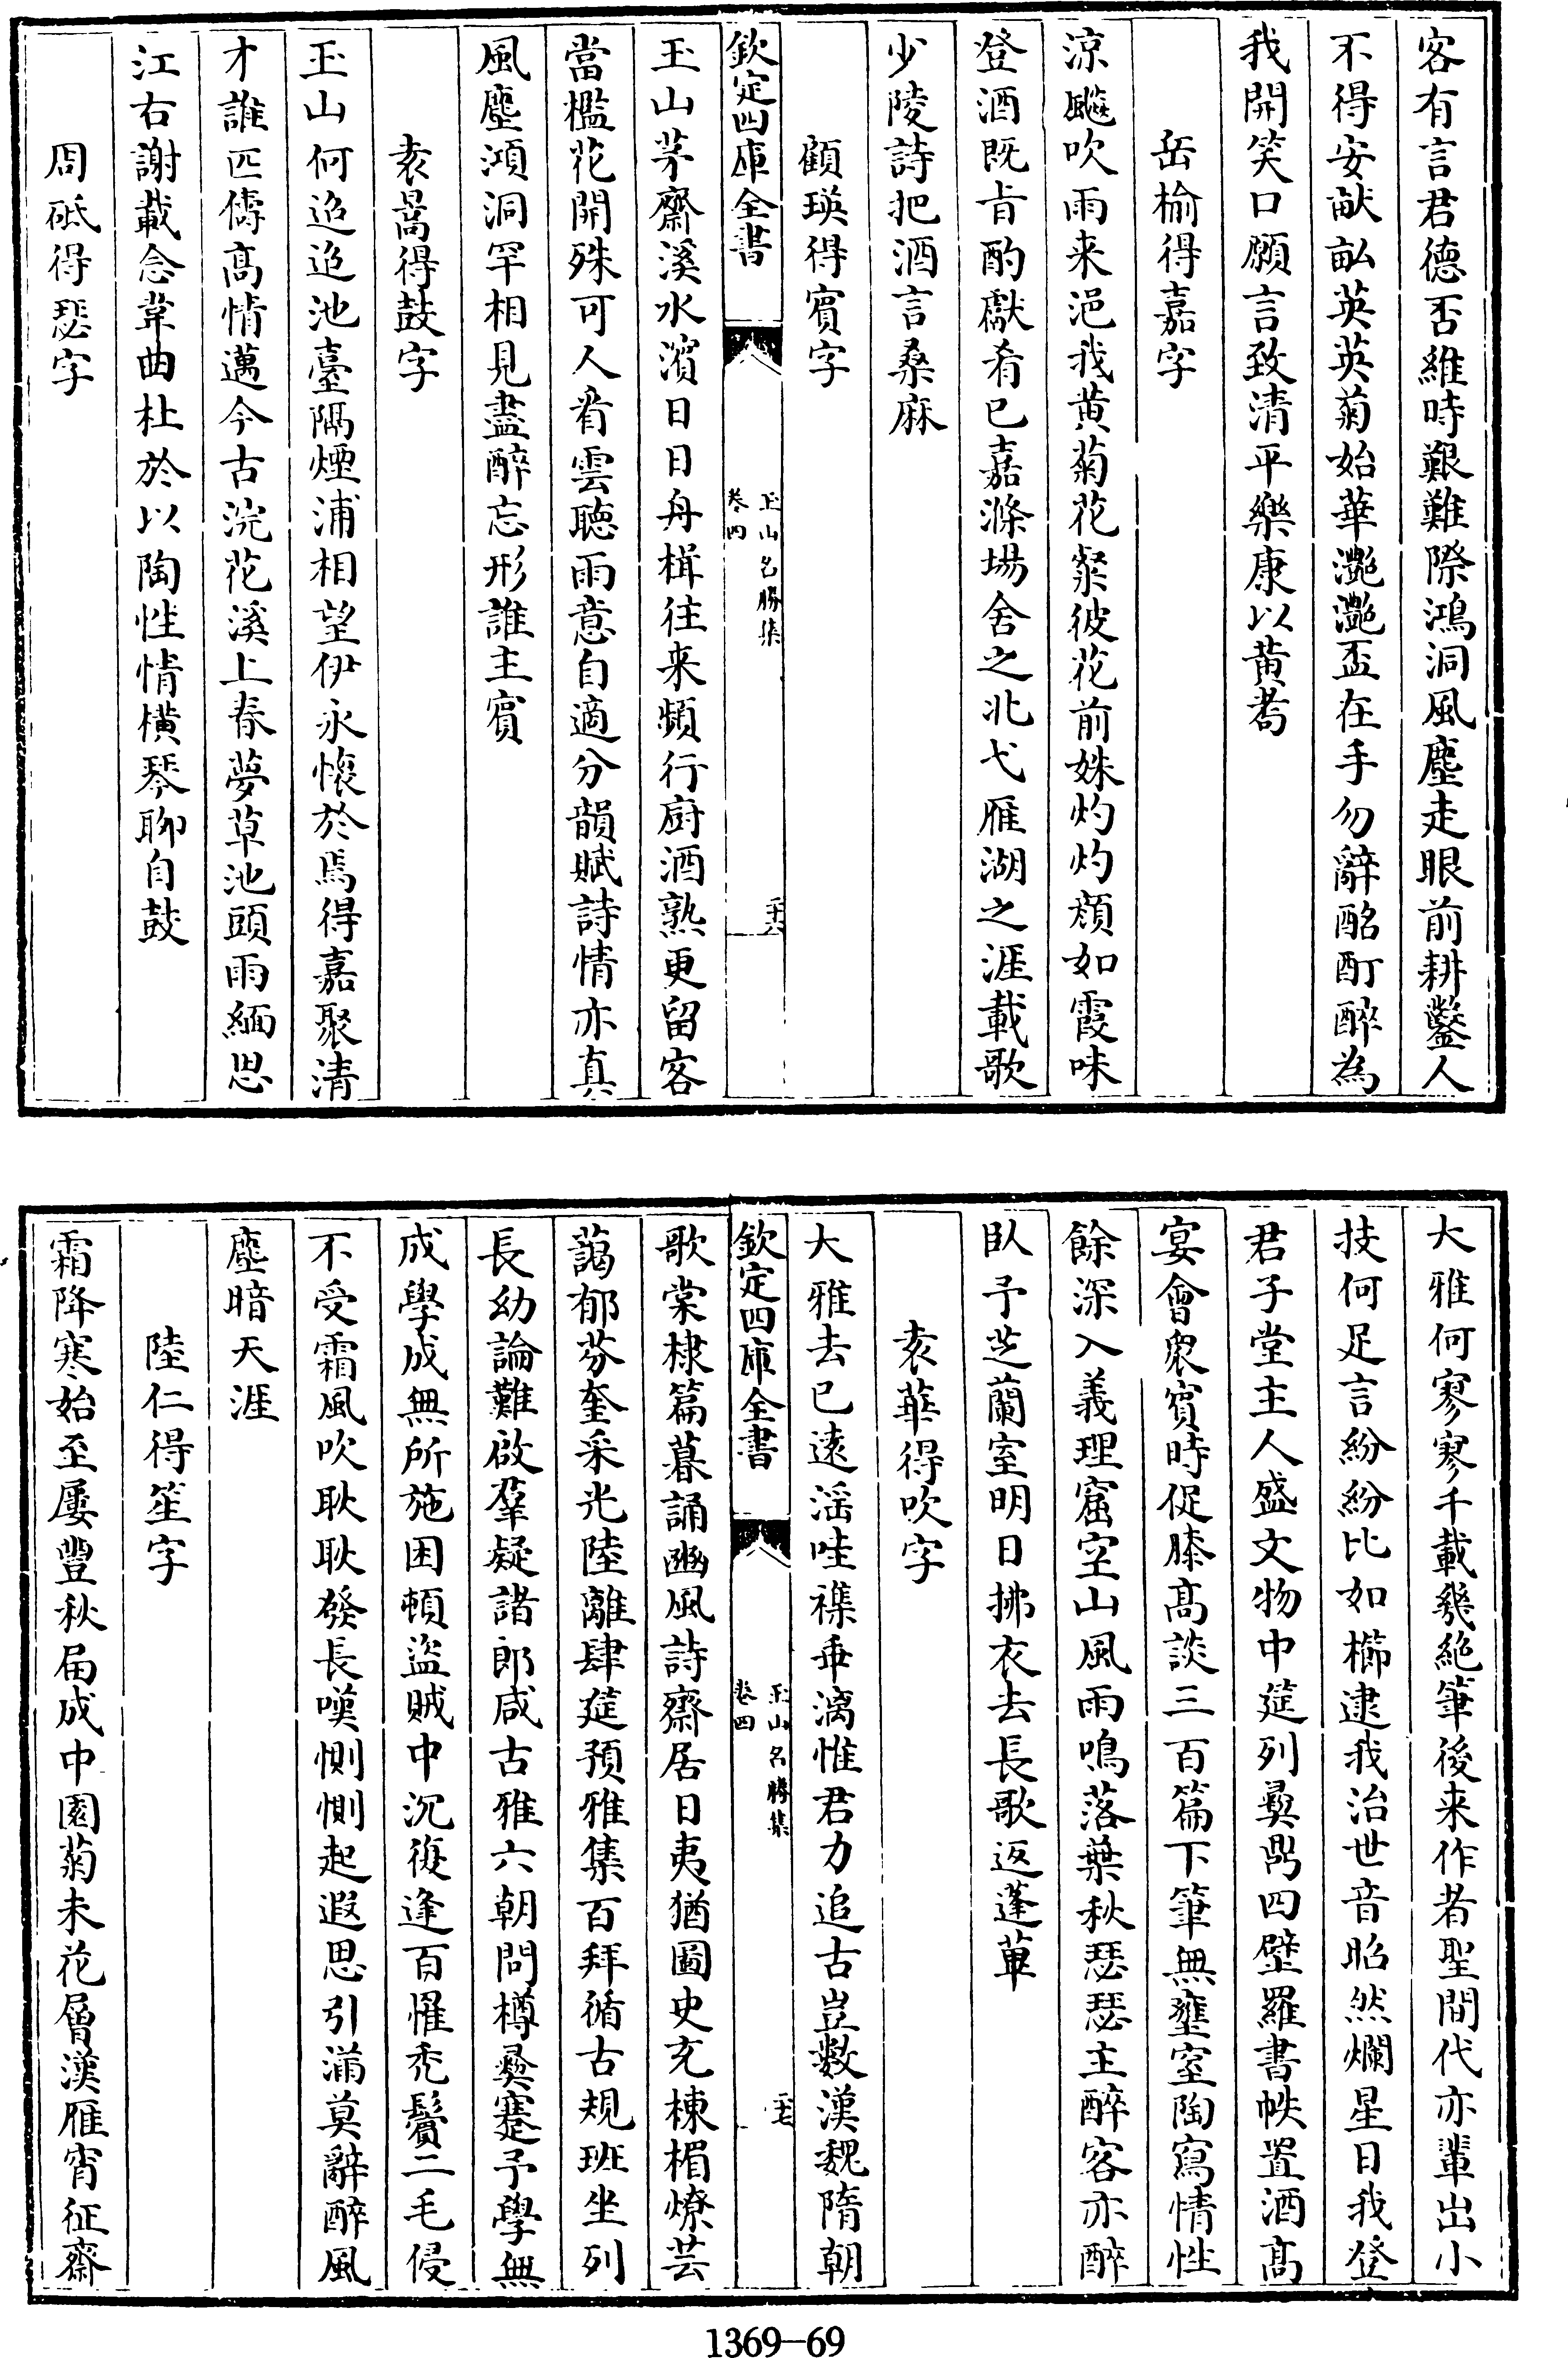 客有言君德否維時艱難際鴻洞風塵走眼前耕鑿人
不得安畎畝英英菊始華灔灔盃在手勿辭酩酊醉為
我開笑口願言致清平樂康以黄耉
岳榆得嘉字
涼飈吹雨来浥我黄菊花粲彼花前姝灼灼顔如霞味
登酒既旨酌獻肴已嘉滌場舍之北弋雁湖之涯載歌
少陵詩把酒言桑麻
顧瑛得賓字
欽定四庫全書
玉山名勝集
卷四
二十六
玉山茅齋溪水濱日日舟楫往来頻行厨酒熟更留客
當檻花開殊可人看雲聴雨意自適分韻賦詩情亦真
風塵澒洞罕相見盡醉忘形誰主賓
袁暠得鼓字
玉山何迢迢池臺隔煙浦相望伊永懐於焉得嘉聚清
才誰匹儔高情邁今古浣花溪上春夢草池頭雨緬思
江右謝載念韋曲杜於以陶性情横琴聊自鼓
周砥得瑟字
大雅何寥寥千載幾絶筆後来作者聖間代亦輩出小
技何足言紛紛比如櫛逮我治世音昭然爛星日我登
君子堂主人盛文物中筵列彛鼎四壁羅書帙置酒高
宴會衆賓時促膝高談三百篇下筆無壅窒陶寫情性
餘深入義理窟空山風雨鳴落葉秋瑟瑟主醉客亦醉
臥予芝蘭室明日拂衣去長歌返蓬蓽
袁華得吹字
大雅去已遠滛哇襍乖漓惟君力追古豈數漢魏隋朝
欽定四庫全書
玉山名勝集
卷四
二十七
歌棠棣篇暮誦豳風詩齋居日夷猶圖史充棟楣燎芸
藹郁芬奎采光陸離肆筵預雅集百拜循古規班坐列
長幼論難啟羣疑諸郎咸古雅六朝問樽彛蹇予學無
成學成無所施困頓盜賊中沉復逢百懼禿鬢二毛侵
不受霜風吹耿耿發長嘆惻惻起遐思引滿莫辭醉風
塵暗天涯
陸仁得笙字
霜降寒始至屢豐秋届成中園菊未花層漢雁宵征齋
1369-69